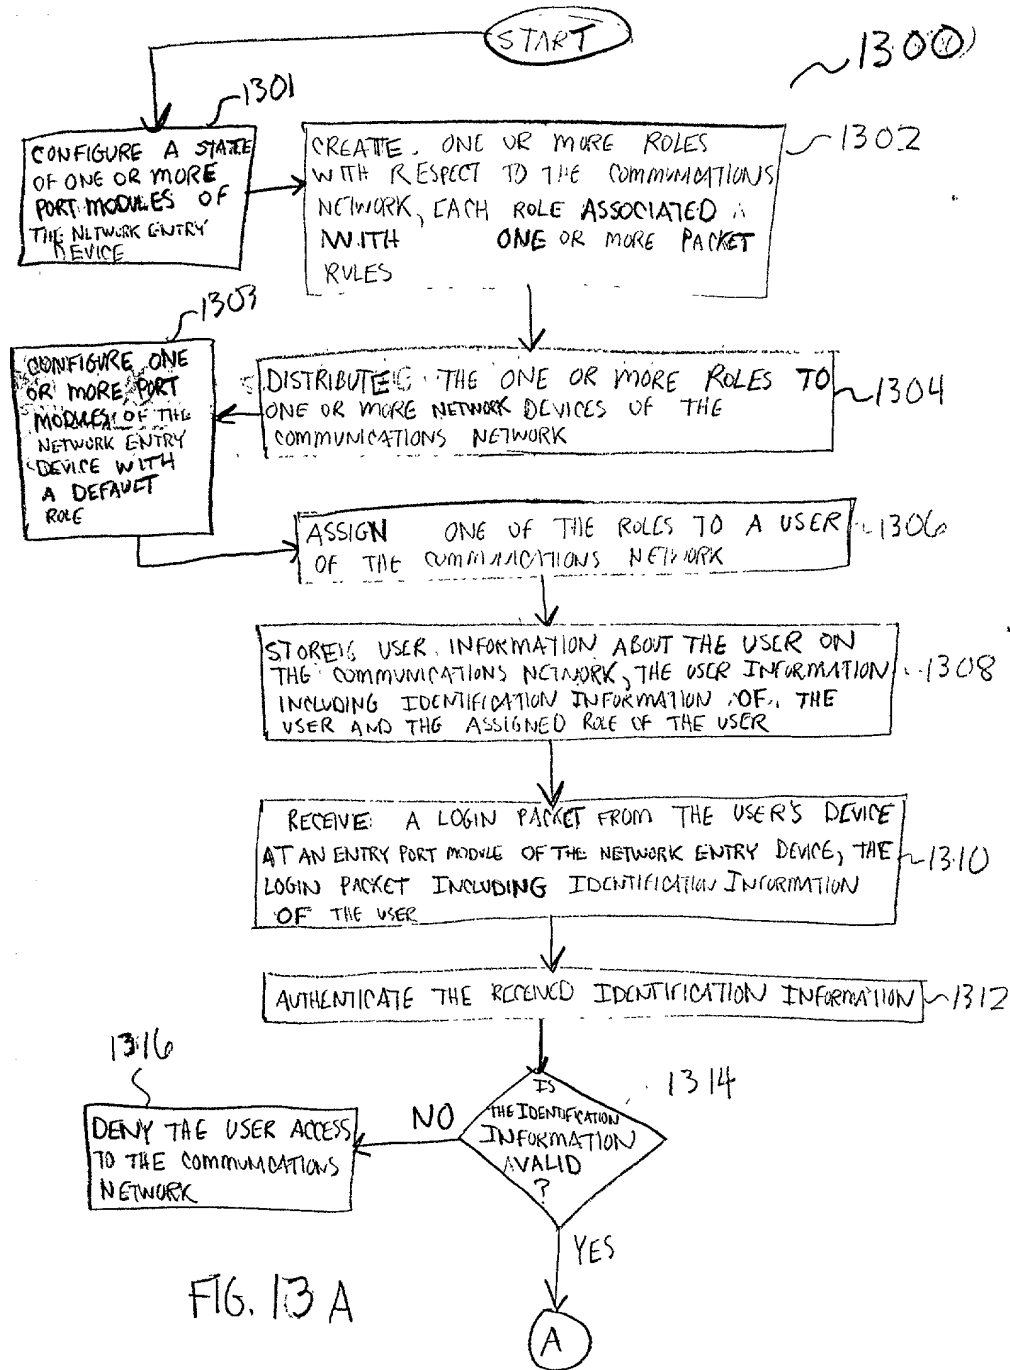 START
1300
1301
CONFIGURE A STATE
OF ONE OR MORE
PORT MODULES OF
THE NETWORK ENTRY
DEVICE
CREATE ONE OR MORE ROLES
WITH RESPECT TO THE COMMUNICATIONS
NETWORK, EACH ROLE ASSOCIATED
WITH ONE OR MORE PACKET
RULES
1302
1303
CONFIGURE ONE
OR MORE PORT
MODULES OF THE
NETWORK ENTRY
DEVICE WITH
A DEFAULT
ROLE
DISTRIBUTE THE ONE OR MORE ROLES TO
ONE OR MORE NETWORK DEVICES OF THE
COMMUNICATIONS NETWORK
1304
ASSIGN ONE OF THE ROLES TO A USER
OF THE COMMUNICATIONS NETWORK
1306
STORE USER INFORMATION ABOUT THE USER ON
THE COMMUNICATIONS NETWORK, THE USER INFORMATION
INCLUDING IDENTIFICATION INFORMATION OF THE
USER AND THE ASSIGNED ROLE OF THE USER
1308
RECEIVE A LOGIN PACKET FROM THE USER'S DEVICE
AT AN ENTRY PORT MODULE OF THE NETWORK ENTRY DEVICE, THE
LOGIN PACKET INCLUDING IDENTIFICATION INFORMATION
OF THE USER
1310
AUTHENTICATE THE RECEIVED IDENTIFICATION INFORMATION
1312
1314
IS
THE IDENTIFICATION
INFORMATION
VALID
?
NO
1316
DENY THE USER ACCESS
TO THE COMMUNICATIONS
NETWORK
YES
A
FIG. 13 A